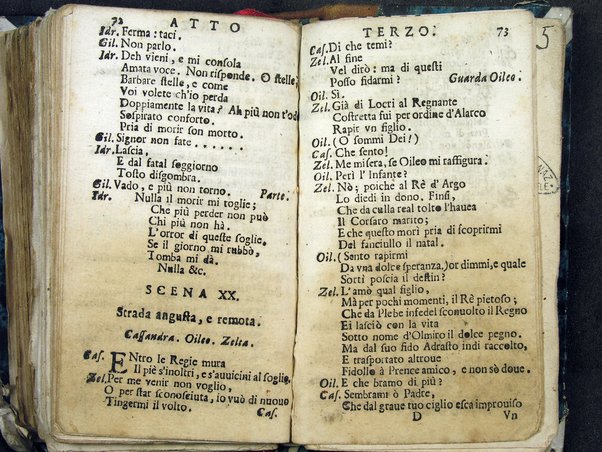 72 ATTO
Idr. Ferma: taci.
Gil. Non parlo.
Idr. Deh vieni, e mi consola
Amata voce. Non risponde. O stelle,
Barbare stelle, e come
Voi volete ch'io perda
Doppiamente la vita? Ah più non t'odo
Sospirato conforto.
Pria di morir son morto.
Gil. Signor non fate . . . . . .
Idr. Lascia,
E dal fatal soggiorno
Tosto disgombra.
Gil. Vado, e più non torno. Parte.
Idr. Nulla il morir mi toglie;
Che più perder non può
Chi più non hà.
L'orror di queste soglie,
Se il giorno mi rubbò,
Tomba mi dà.
Nulla &c.
SCENA XX.
Strada angusta, e remota.
Cassandra. Oileo. Zelta.
Cas. ENtro le Regie mura
Il piè s'inoltri, e s'auuicini al soglio.
Zel. Per me venir non voglio,
O per star sconosciuta, io vuò di nuouo
Tingermi il volto. Cas.
TERZO. 73
Cas. Di che temi?
Zel. Al fine
Vel dirò: ma di questi
Posso fidarmi? Guarda Oileo.
Oil. Sì.
Zel. Già di Locri al Regnante
Costretta fui per ordine d'Alarco
Rapir vn figlio.
Oil. (O sommi Dei!)
Cas. Che sento!
Zel. Me misera, se Oileo mi raffigura.
Oil. Perì l'Infante?
Zel. Nò; poiche al Rè d'Argo
Lo diedi in dono. Finsi,
Che da culla real tolto l'hauea
Il Corsaro marito;
E che questo morì pria di scoprirmi
Del fanciullo il natal.
Oil. (Sento rapirmi
Da vna dolce speranza.) or dimmi, e quale
Sortì poscia il destin?
Zel. L'amò qual figlio,
Mà per pochi momenti, il Rè pietoso;
Che da Plebe infedel sconuolto il Regno
Ei lasciò con la vita
Sotto nome d'Olmiro il dolce pegno.
Ma dal suo fido Adrasto indi raccolto,
E trasportato altroue
Fidollo à Prence amico, e non sò doue.
Oil. E che bramo di più?
Cas. Sembrami ò Padre,
Che dal graue tuo ciglio esca improuiso
D Vn
5